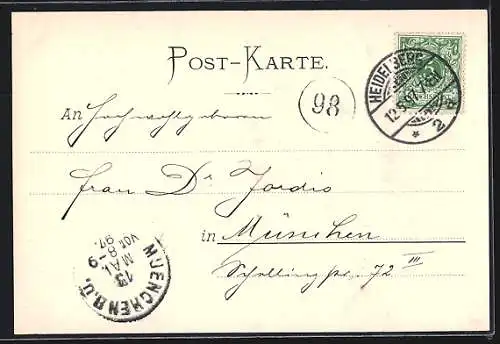 POST-KARTE.
HEIDELBERG
12.5.97.7-8V.
* 2
98
An Hochwohlgeboren
Frau Dr Jordis
in München
Schellingstr. 72 III
MUENCHEN B.O.
13
MAI
VOR 8-9
97.